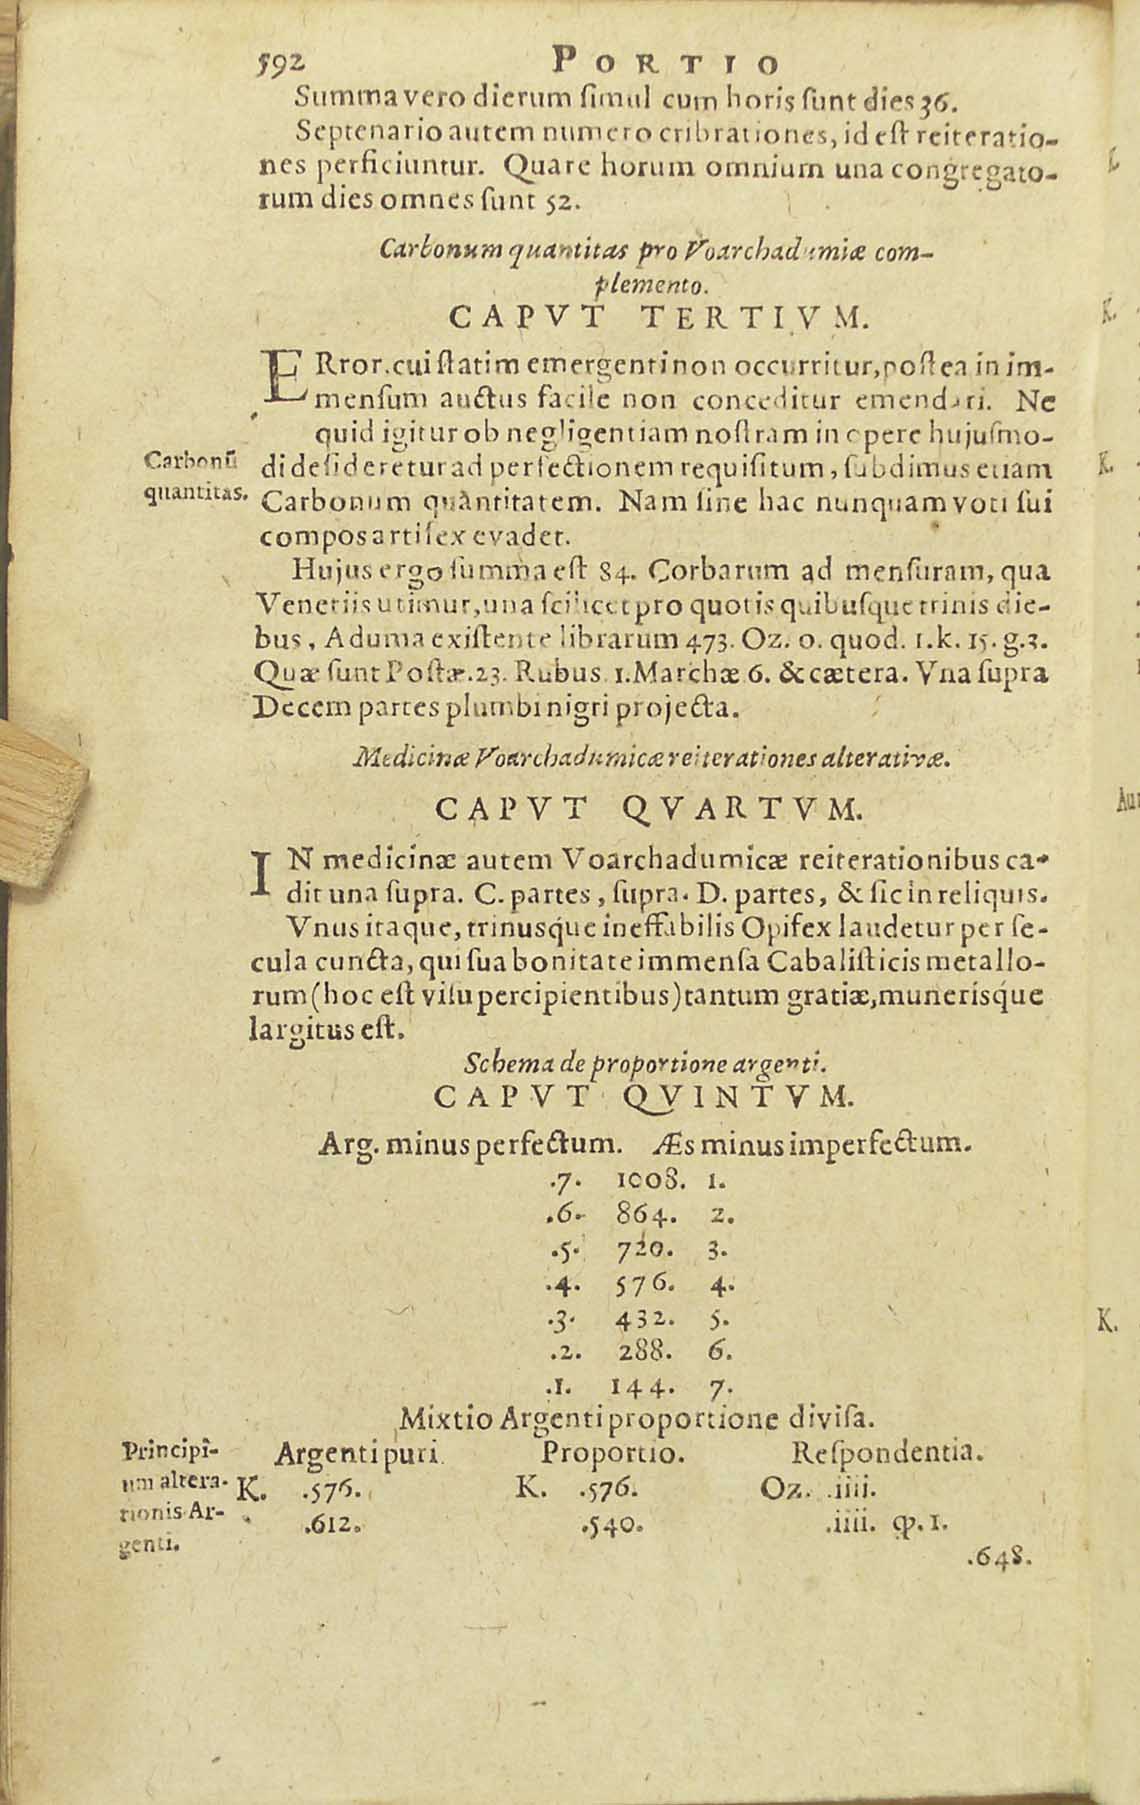 592 PORTIO
Summa vero dierum simul cum horis sunt dies 36.
Septenario autem numero cribrationes, id est reiteratio-
nes perficiuntur. Quare horum omnium una congregato-
rum dies omnes sunt 52.
Carbonum quantitas pro Voarchadumiæ com-
plemento.
CAPVT TERTIVM.
ERror, cui statim emergenti non occurritur, postea in im-
mensum auctus facile non conceditur emendari. Ne
quid igitur ob negligentiam nostram in opere hujusmo-
Carbonū
di desideretur ad perfectionem requisitum, subdimus etiam
quantitas.
Carbonum quantitatem. Nam sine hac nunquam voti sui
compos artifex evadet.
Hujus ergo summa est 84. Corbarum ad mensuram, qua
Venetiis utimur, una scilicet pro quotis quibusque trinis die-
bus, Aduma existente librarum 473. Oz. 0. quod. 1. k. 15. g. 3.
Quæ sunt Postæ. 23. Rubus 1. Marchæ 6. & cætera. Vna supra
Decem partes plumbi nigri projecta.
Medicinæ Voarchadumicæ reiterationes alterativæ.
CAPVT QVARTVM.
IN medicinæ autem Voarchadumicæ reiterationibus ca-
dit una supra. C. partes, supra. D. partes, & sic in reliquis.
Vnus itaque, trinusque ineffabilis Opifex laudetur per se-
cula cuncta, qui sua bonitate immensa Cabalisticis metallo-
rum (hoc est visu percipientibus) tantum gratiæ, munerisque
largitus est.
Schema de proportione argenti.
CAPVT QVINTVM.
Arg. minus perfectum. Æs minus imperfectum.
.7. 1008. 1.
.6. 864. 2.
.5. 720. 3.
.4. 576. 4.
.3. 432. 5.
.2. 288. 6.
.1. 144. 7.
Mixtio Argenti proportione divisa.
Principi-
um altera-
tionis Ar-
genti.
Argenti puri. Proportio. Respondentia.
K. .576. K. .576. Oz. .iiii.
.612. .540. .iiii. qp. 1.
.648.
K.
K.
Aur
K.